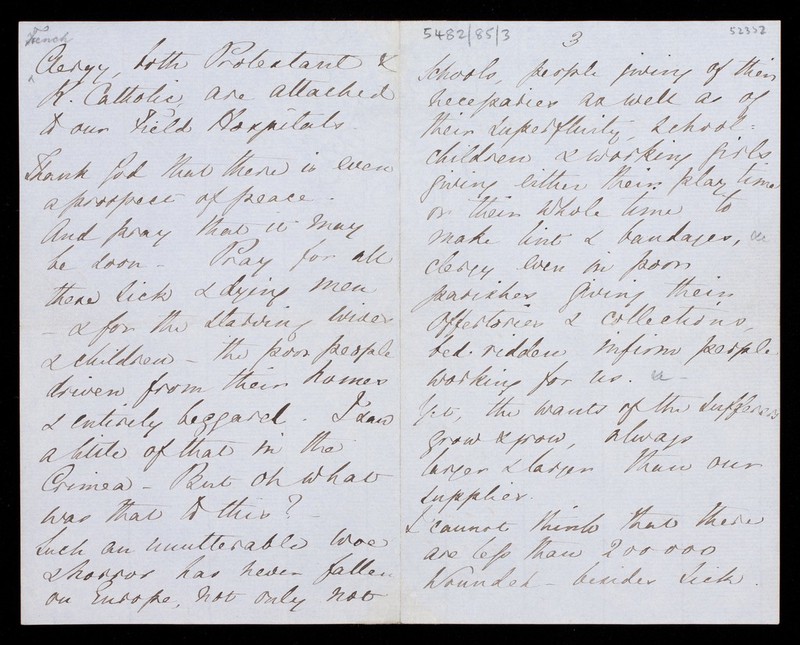 French
Clergy, both Protestant &
R. Catholic, are attached
to our Field Hospitals.
Thank God that there is even
a prospect of peace.
And pray that it may
be soon - Pray for all
these sick & dying men
- & for the starving wives
& children - the poor people
driven from their homes
& entirely beggared. I saw
a little of that in the
Crimea - But oh what
was that to this? -
Such an unutterable woe
& horror has never fallen
on Europe, not only not
5482/85/3
3
52332
Schools, people giving of their
necessaries as well as of
their superfluity, school=
children & working girls
giving either their play time
or their whole time to
make lint & bandages,
clergy even in poor
parishes giving their
Offertories & collections,
bed-ridden infirm people
working for us. -
Yet, the wants of the sufferers
grow & grow, always
larger & larger than our
supplies.
I cannot think that there
are less than 200 000
wounded - besides sick.